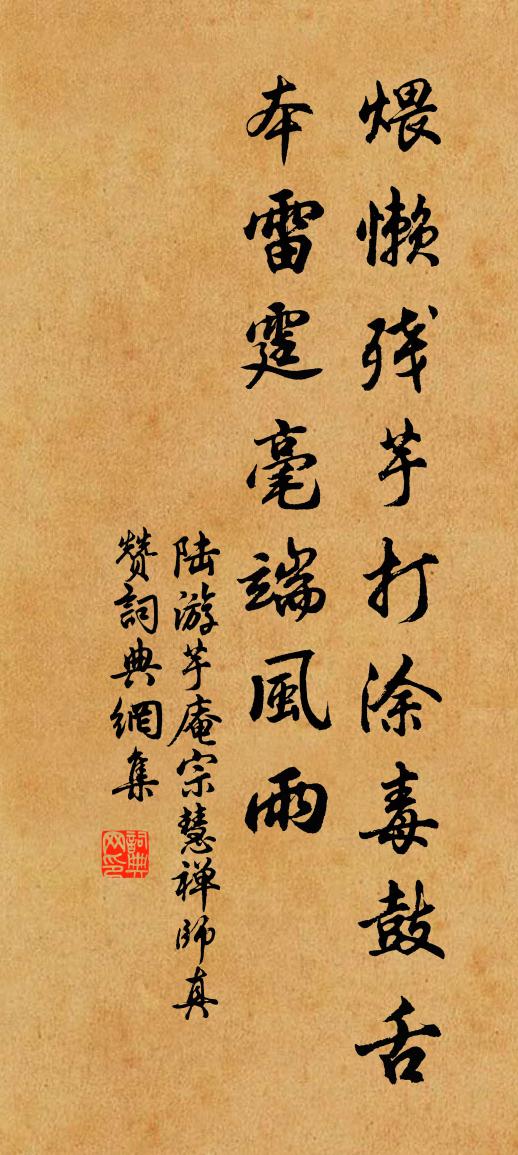 煨懒残芋打涂毒鼓舌
本雷霆毫端風雨
陆游芋庵宗慧禅师真
赞詞典網集
詞典网印